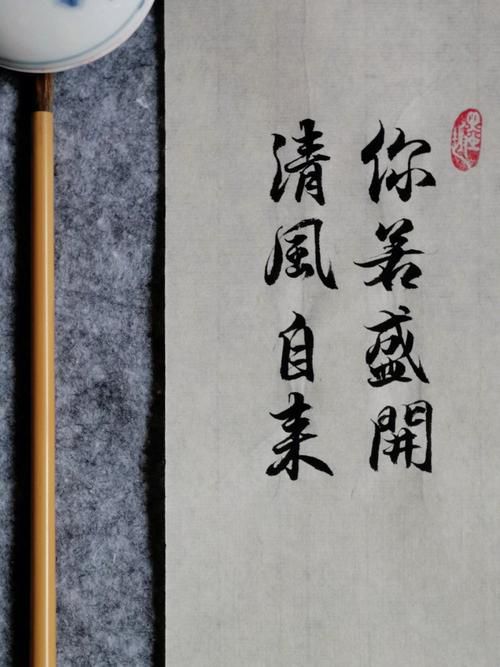 你若盛開
清風自来